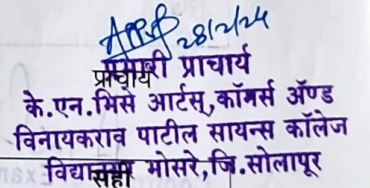 28/2/24
प्राचार्य
प्रभारी प्राचार्य
के.एन.भिसे आर्टस्,कॉमर्स ॲण्ड
विनायकराव पाटील सायन्स कॉलेज
भोसरे,जि.सोलापूर
सही